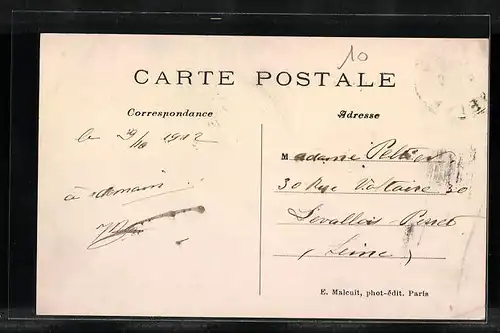 10
CARTE POSTALE
Correspondance
Adresse
le 29/10 1912
à demain
Madame Peltier
30 Rue Voltaire 30
Levallois-Perret
(Seine)
E. Malcuit, phot-édit. Paris